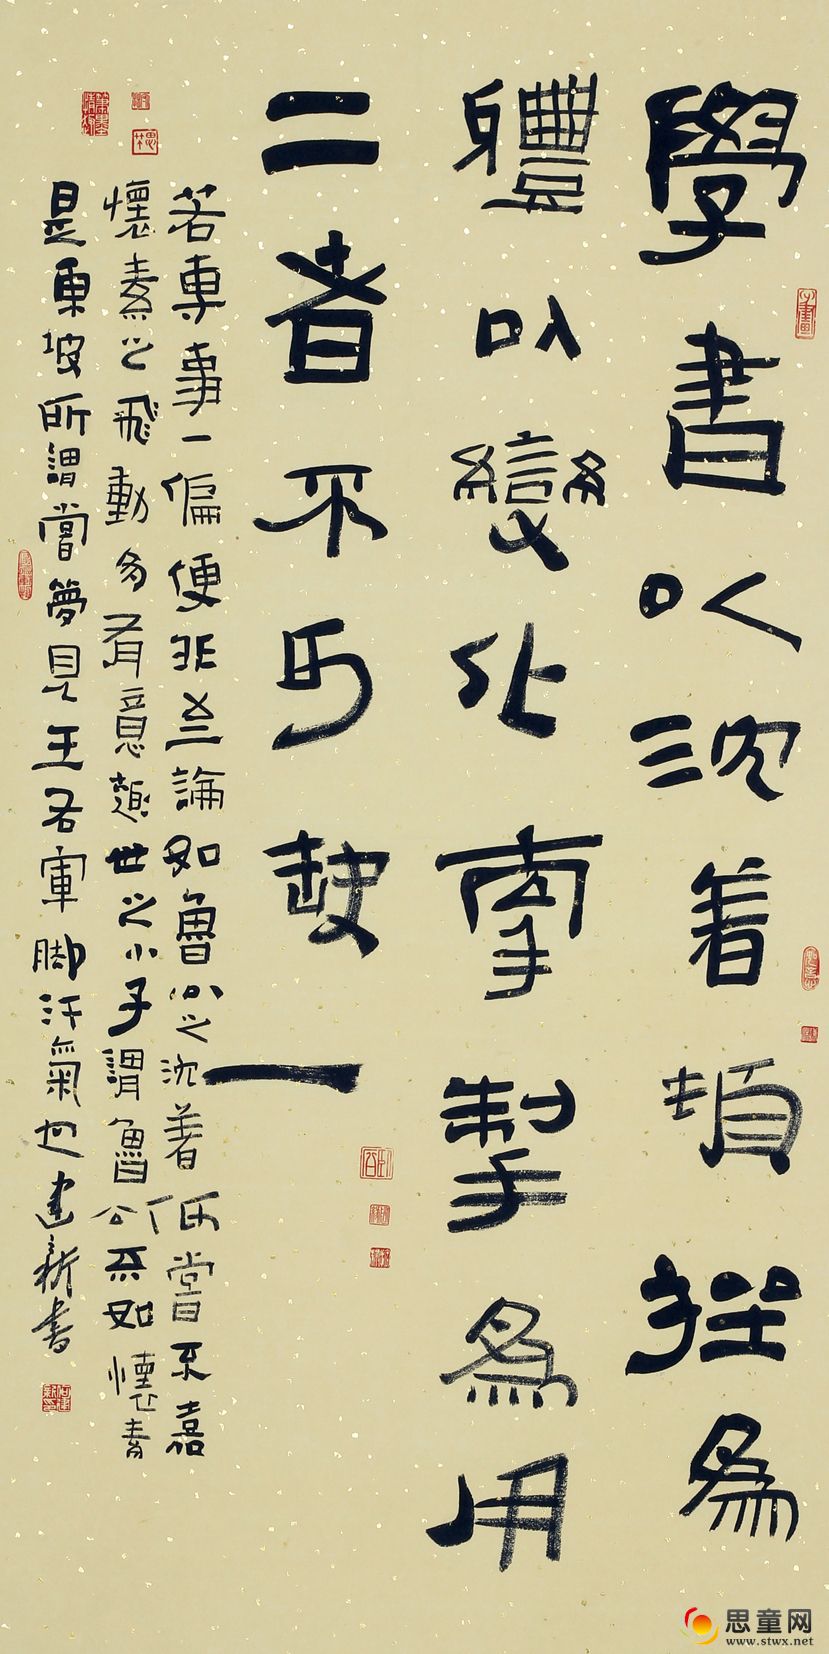 學書以沈着頓挫為
體以變化牽掣為用
二者不可缺一
若專事一偏便非至論如魯公之沈着何嘗不嘉
懷素之飛動多有意趣世之小子謂魯公不如懷素
是東坡所謂嘗夢見王右軍脚汗氣也建新書
思童网
www.stwx.net